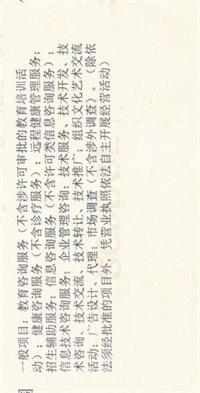 一般项目：教育咨询服务（不含涉许可审批的教育培训活
动）；健康咨询服务（不含诊疗服务）；远程健康管理服务；
招生辅助服务；信息咨询服务（不含许可类信息咨询服务）；
信息技术咨询服务；企业管理咨询；技术服务、技术开发、技
术咨询、技术交流、技术转让、技术推广；组织文化艺术交流
活动；广告设计、代理；市场调查（不含涉外调查）。（除依
法须经批准的项目外，凭营业执照依法自主开展经营活动）